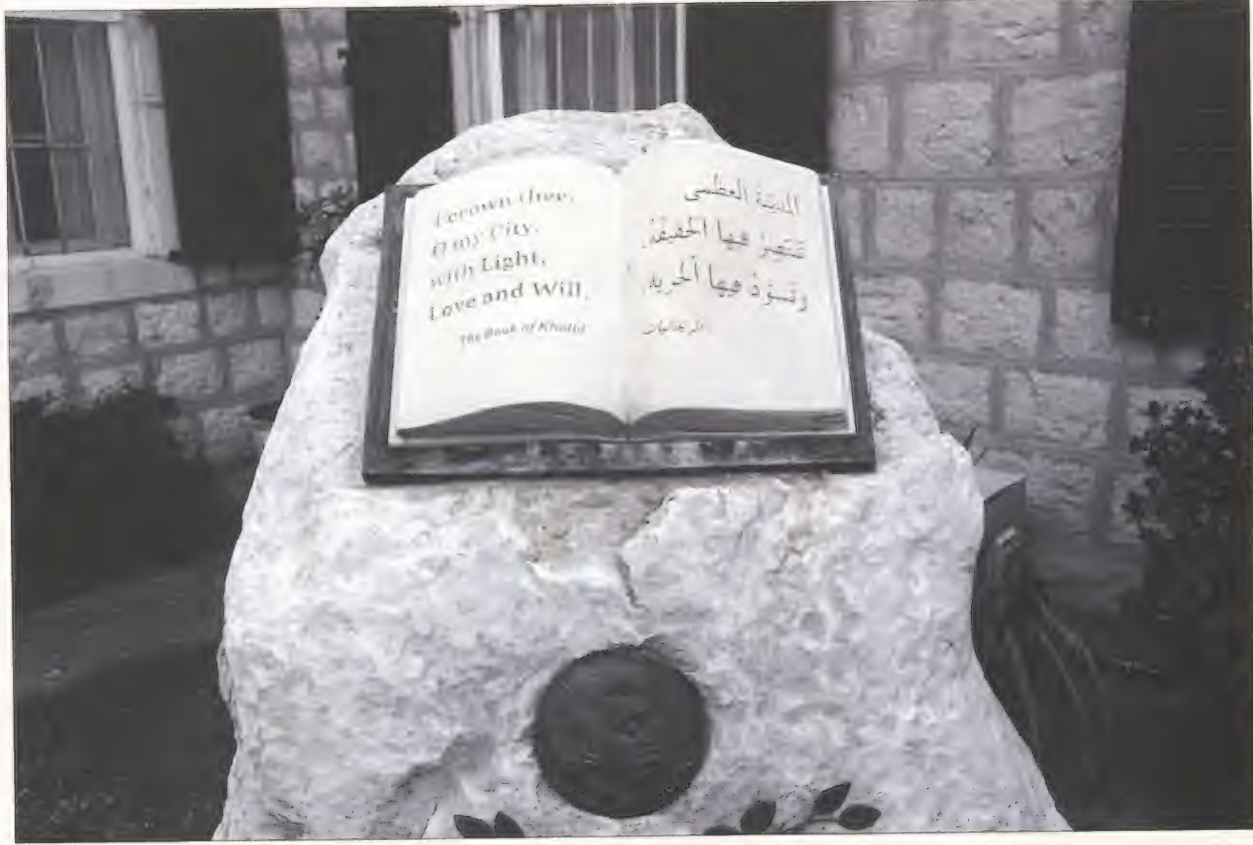 I crown thee,
O my City,
with Light,
Love and Will.
The Book of Khalid
المدينة العظمى
تنتصرُ فيها الحقيقةُ،
وتسوُدُ فيها الحرية.
الريحانيات